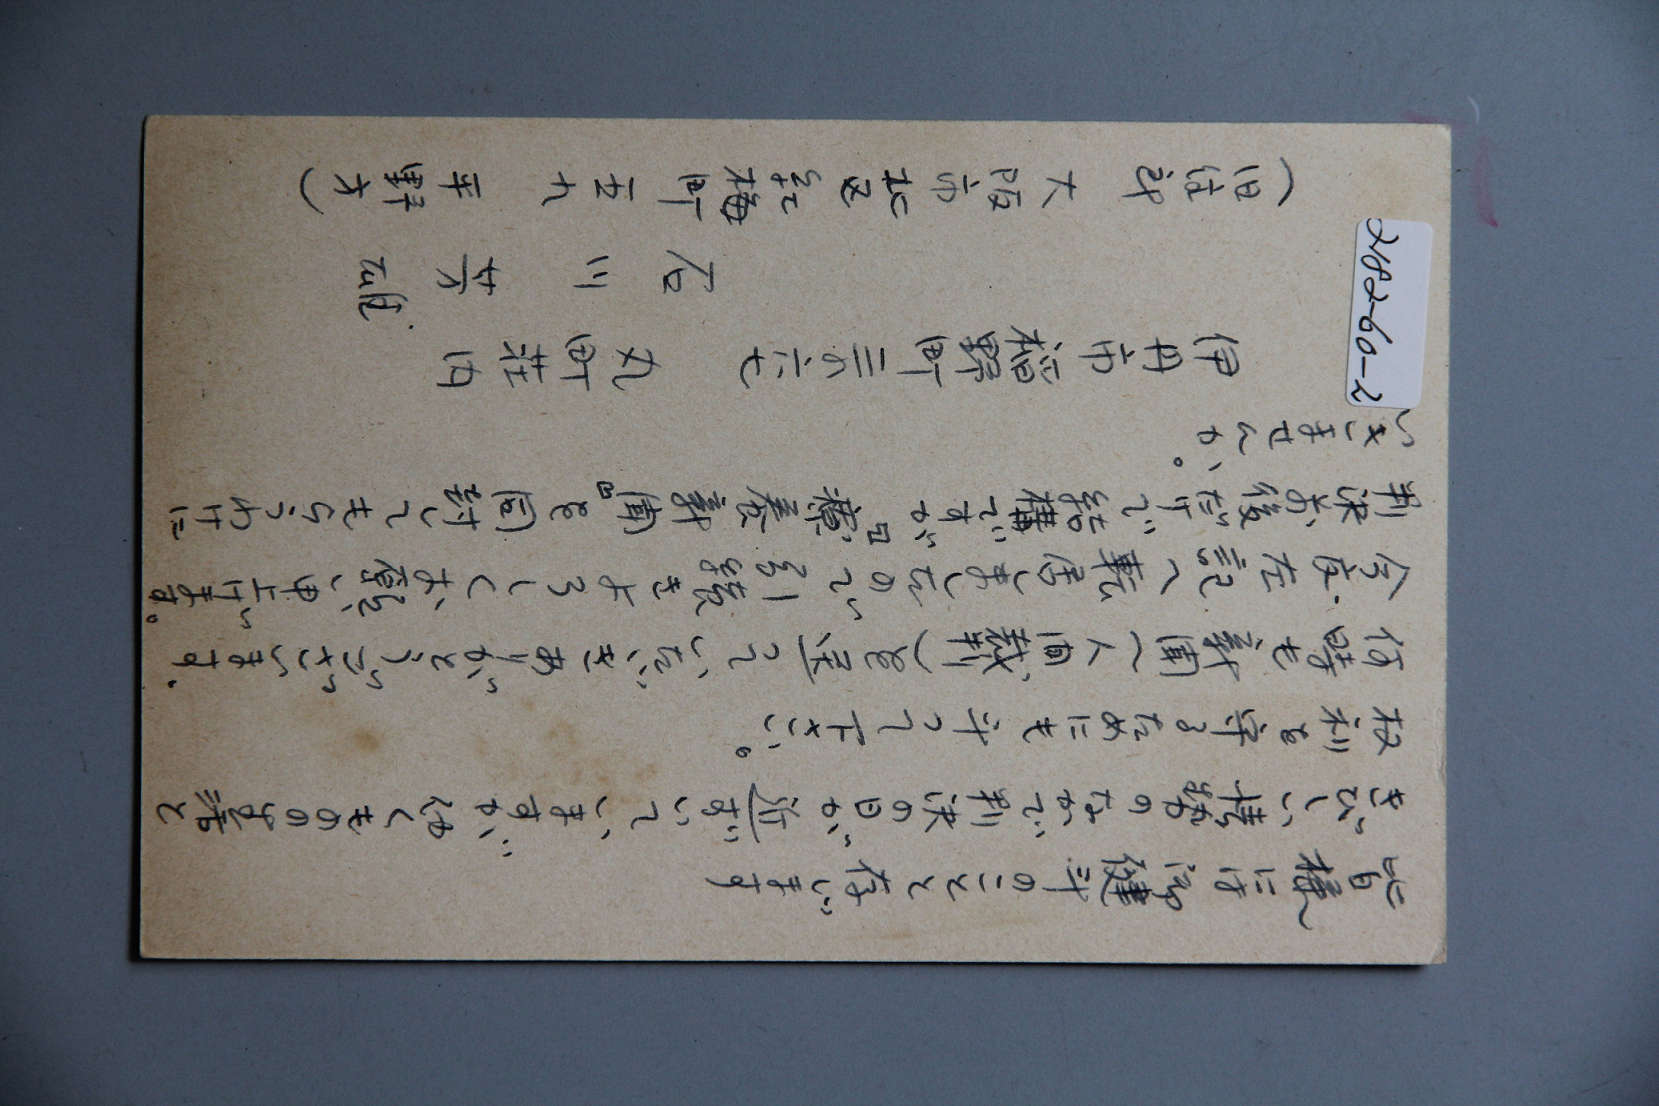 皆様には御健斗のことと存じます
きびしい情勢のなかで判決の日が近づいていますが、仂くものの正義と
权利を守るためにも斗って下さい。
何時も新聞(人間裁判)を送っていただきありがとうございます。
今度左記へ転居しましたので引続きよろしくお願い申上げます。
判決前後だけで結構ですが『療養新聞』を同封してもらうわけに
いきませんか。
伊丹市稲野町三の六七 九町荘内
石川 芳
(旧住所 大阪市北区 町 五九 平野方)
2182-60-2